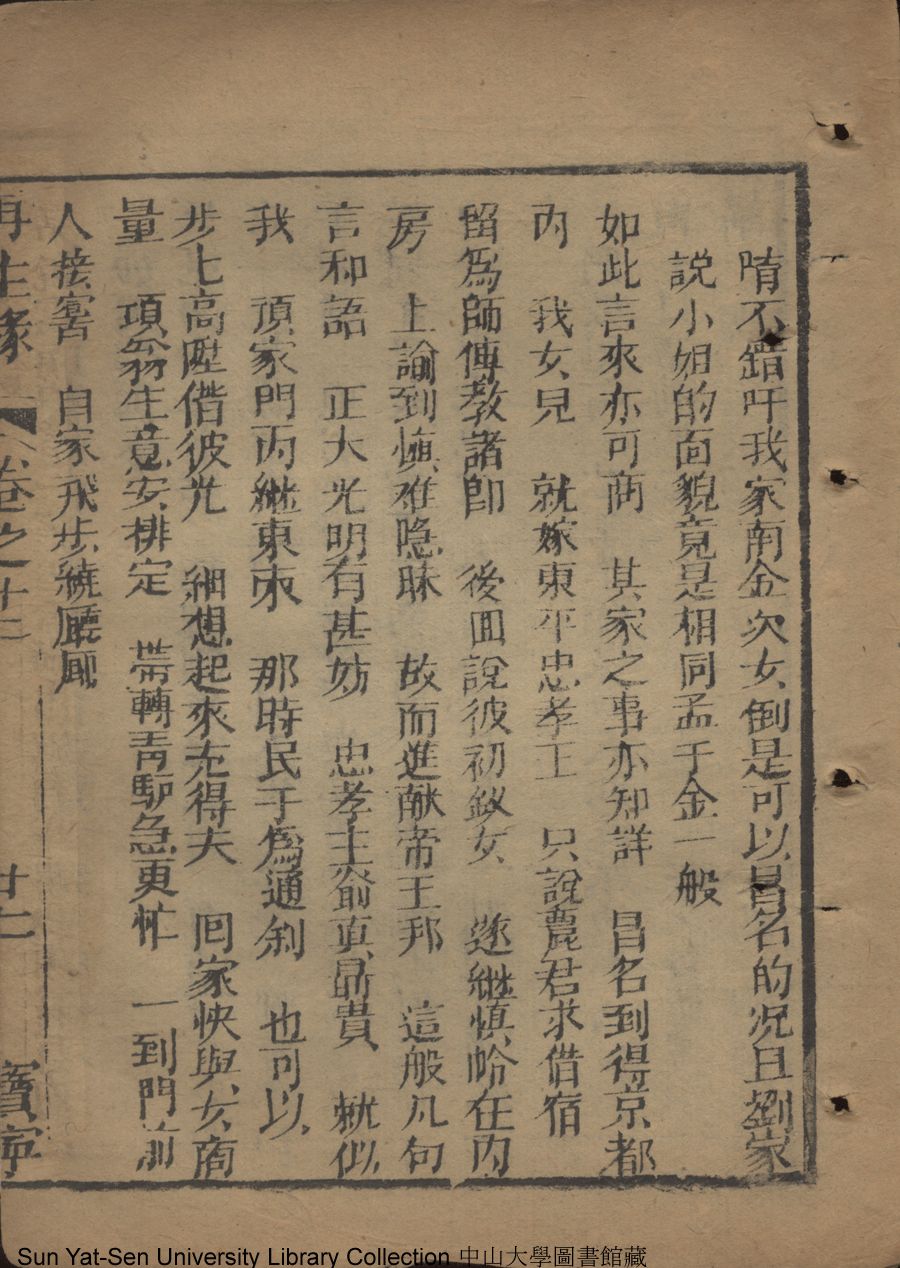 隋不錯吁我家南金次女倒是可以昌名的况且劉家
說小姐的面貌竟是相同孟于金一般
如此言來亦可商　其家之事亦知詳　昌名到得京都
內　我女兒　就嫁東平忠孝王　只說麗君求借宿
留為師傳教諸郎　後囬說彼初釵女　遂継慎帢在內
房　上諭到慎难隐昧　故而進献帝王邦　這般凡句
言和語　正大光明有甚妨　忠孝主翁真晶貴　就似
我　項家門丙継東來　那時民于爲通剡　也可以
步上高陞借彼光　細想起來充得夫　囘家快與女商
量　項翁生意安排定　带轉青馿急更忙　一到門前
人接害　自家飛步繞廰厢
再生緣　卷之十二　廿二　寳寕
Sun Yat-Sen University Library Collection 中山大學圖書館藏